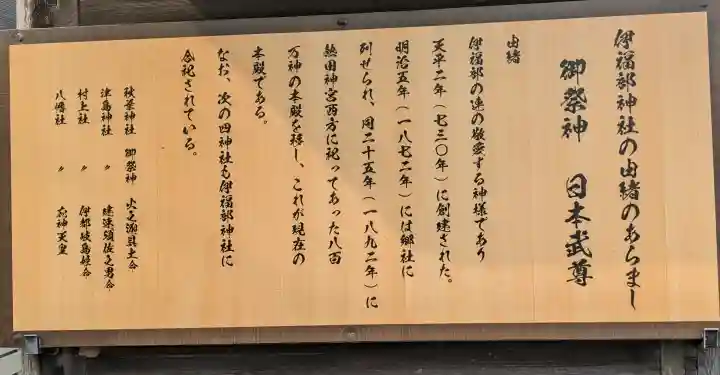 伊福部神社の由緒のあらまし
御祭神 日本武尊
由緒
伊福部の連の敬愛する神様であり
天平二年(七三〇年)に創建された。
明治五年(一八七二年)には郷社に
列せられ、同二十五年(一八九二年)に
熱田神宮西方に祀ってあった八百
万神の本殿を移し、これが現在の
本殿である。
なお、次の四神社も伊福部神社に
合祀されている。
秋葉神社 御祭神 火之迦具土命
津島神社 〃 建速須佐之男命
村上社 〃 伊都岐島姫命
八幡社 〃 応神天皇